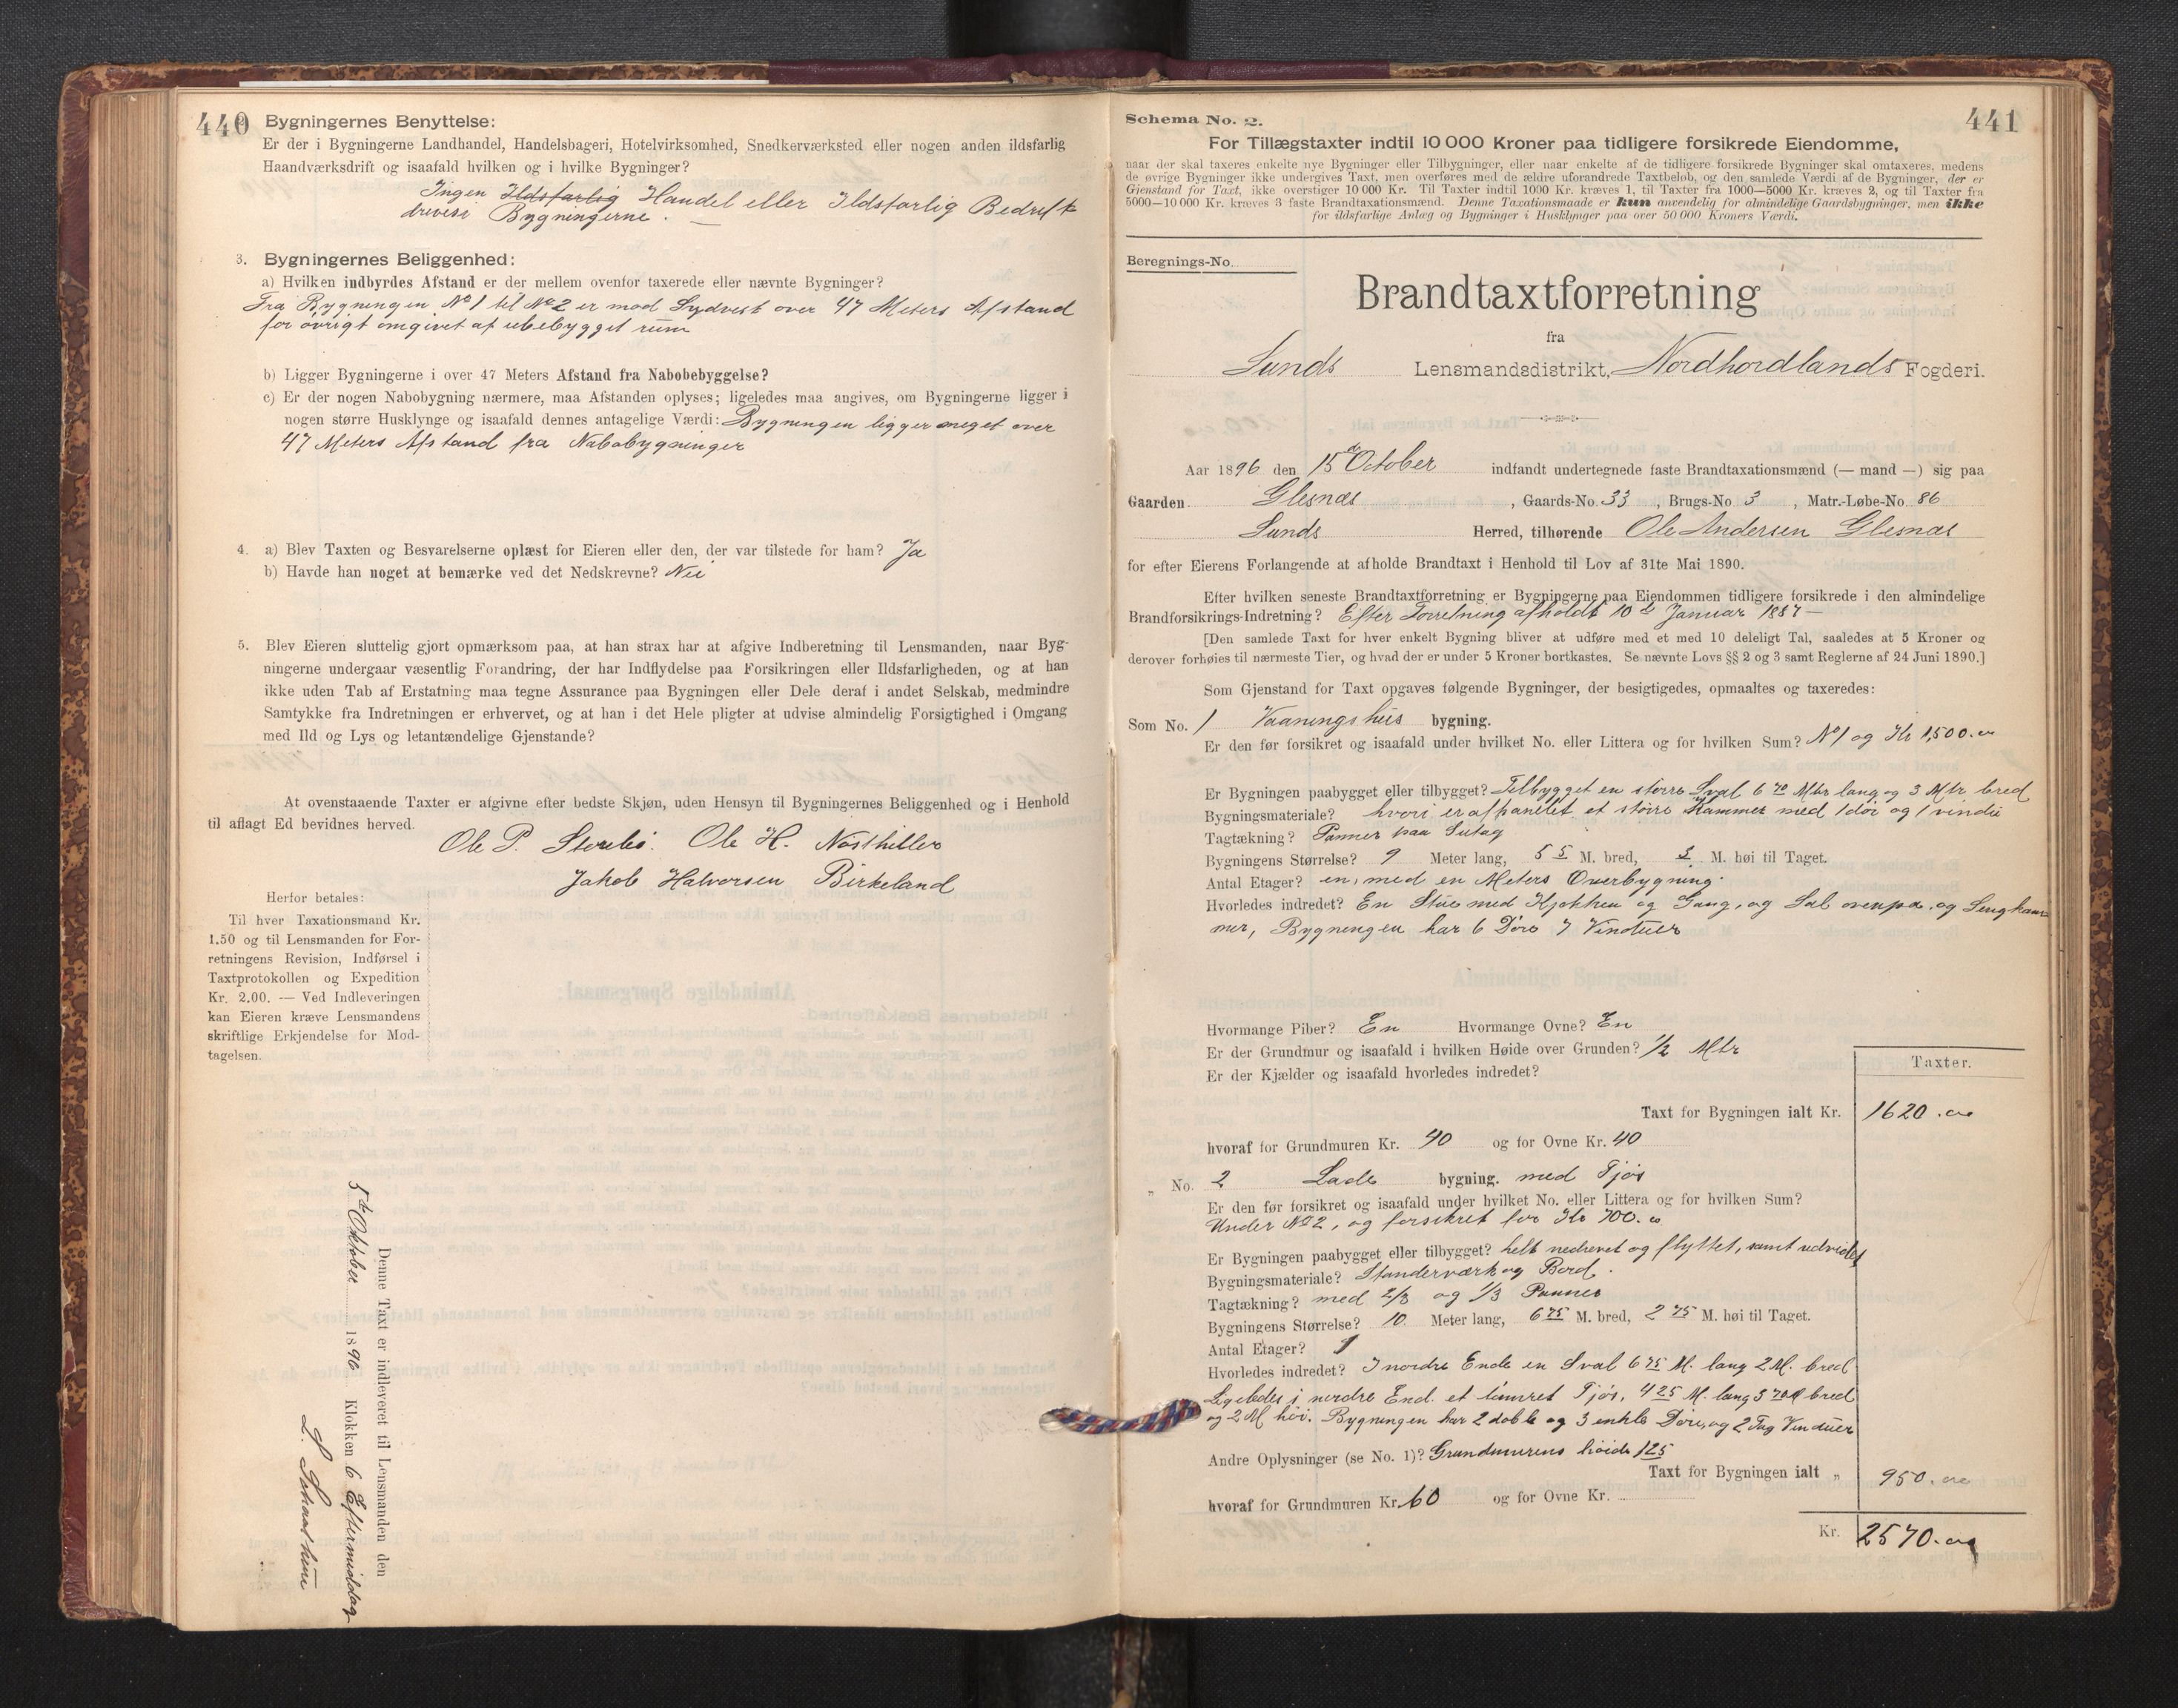 440
2. Bygningernes Benyttelse:
Er der i Bygningerne Landhandel, Handelsbageri, Hotelvirksomhed, Snedkerværksted eller nogen anden ildsfarlig
Haandværksdrift og isaafald hvilken og i hvilke Bygninger?
Ingen Ildsfarlig Handel eller Ildsfarlig Bedrift
drives i Bygningerne.
3. Bygningernes Beliggenhed:
a) Hvilken indbyrdes Afstand er der mellem ovenfor taxerede eller nævnte Bygninger?
Fra Bygningen No 1 til No 2 er mod Sydvest over 47 Meters Afstand
for øvrigt omgivet af ubebygget rum
b) Ligger Bygningerne i over 47 Meters Afstand fra Nabobebyggelse?
c) Er der nogen Nabobygning nærmere, maa Afstanden oplyses; ligeledes maa angives, om Bygningerne ligger i
nogen større Husklynge og isaafald dennes antagelige Værdi: Bygningen ligger meget over
47 Meters Afstand fra Nabobygninger
4. a) Blev Taxten og Besvarelserne oplæst for Eieren eller den, der var tilstede for ham? Ja
b) Havde han noget at bemærke ved det Nedskrevne? Nei
5. Blev Eieren sluttelig gjort opmærksom paa, at han strax har at afgive Indberetning til Lensmanden, naar Byg-
ningerne undergaar væsentlig Forandring, der har Indflydelse paa Forsikringen eller Ildsfarligheden, og at han
ikke uden Tab af Erstatning maa tegne Assurance paa Bygningen eller Dele deraf i andet Selskab, medmindre
Samtykke fra Indretningen er erhvervet, og at han i det Hele pligter at udvise almindelig Forsigtighed i Omgang
med Ild og Lys og letantændelige Gjenstande?
At ovenstaaende Taxter er afgivne efter bedste Skjøn, uden Hensyn til Bygningernes Beliggenhed og i Henhold
til aflagt Ed bevidnes herved.
Ole P. Storebø. Ole H.
Jakob Halvorsen Birkeland
Herfor betales:
Til hver Taxationsmand Kr.
1.50 og til Lensmanden for For-
retningens Revision, Indførsel i
Taxtprotokollen og Expedition
Kr. 2.00. — Ved Indleveringen
kan Eieren kræve Lensmandens
skriftlige Erkjendelse for Mod-
tagelsen.
Denne Taxt er indleveret til Lensmanden den
5te Oktober 1896 Klokken 6 Eftermiddag
441
Schema No. 2.
For Tillægstaxter indtil 10 000 Kroner paa tidligere forsikrede Eiendomme,
naar der skal taxeres enkelte nye Bygninger eller Tilbygninger, eller naar enkelte af de tidligere forsikrede Bygninger skal omtaxeres, medens
de øvrige Bygninger ikke undergives Taxt, men overføres med de ældre uforandrede Taxtbeløb, og den samlede Værdi af de Bygninger, der er
Gjenstand for Taxt, ikke overstiger 10 000 Kr. Til Taxter indtil 1000 Kr. kræves 1, til Taxter fra 1000—5000 Kr. kræves 2, og til Taxter fra
5000—10 000 Kr. kræves 3 faste Brandtaxationsmænd. Denne Taxationsmaade er kun anvendelig for almindelige Gaardsbygninger, men ikke
for ildsfarlige Anlæg og Bygninger i Husklynger paa over 50 000 Kroners Værdi.
Beregnings-No.
Brandtaxtforretning
fra
Sunds Lensmandsdistrikt, Nordhordlands Fogderi.
Aar 1896 den 15de October indfandt undertegnede faste Brandtaxationsmænd (— mand —) sig paa
Gaarden Glesnæs, Gaards-No. 33, Brugs-No 3, Matr.-Løbe-No. 86
Sunds Herred, tilhørende Ole Andersen Glesnæs
for efter Eierens Forlangende at afholde Brandtaxt i Henhold til Lov af 31te Mai 1890.
Efter hvilken seneste Brandtaxtforretning er Bygningerne paa Eiendommen tidligere forsikrede i den almindelige
Brandforsikrings-Indretning? Efter Forretning afholdt 10de Januar 1887 —
[Den samlede Taxt for hver enkelt Bygning bliver at udføre med et med 10 deleligt Tal, saaledes at 5 Kroner og
derover forhøies til nærmeste Tier, og hvad der er under 5 Kroner bortkastes. Se nævnte Lovs §§ 2 og 3 samt Reglerne af 24 Juni 1890.]
Som Gjenstand for Taxt opgaves følgende Bygninger, der besigtigedes, opmaaltes og taxeredes:
Som No. 1 Vaaningshus bygning.
Er den før forsikret og isaafald under hvilket No. eller Littera og for hvilken Sum? No 1 og Kr 1,500.00
Er Bygningen paabygget eller tilbygget? Tilbygget en større Sval 6 70 Mtr lang og 3 Mtr bred
Bygningsmateriale? hvori er afpanelet et større Kammer med 1 dør og 1 vindu
Tagtækning? Panner paa Sutag
Bygningens Størrelse? 9 Meter lang, 5 5 M. bred, 3 M. høi til Taget.
Antal Etager? en, med en Meters Overbygning.
Hvorledes indredet? En Stue med Kjøkken og Gang, og Sal ovenpa. og Sengkam-
mer, Bygningen har 6 Døre 7 Vinduer
Hvormange Piber? En Hvormange Ovne? En
Er der Grundmur og isaafald i hvilken Høide over Grunden? 1/2 Mtr
Er der Kjælder og isaafald hvorledes indredet?
Taxter.
Taxt for Bygningen ialt Kr. 1620.00
hvoraf for Grundmuren Kr. 40 og for Ovne Kr. 40
„ No. 2 Lade bygning. med Fjøs
Er den før forsikret og isaafald under hvilket No. eller Littera og for hvilken Sum?
Under No 2, og forsikret for Kr 700.00
Er Bygningen paabygget eller tilbygget? helt nedrevet og flyttet, samt udvidet
Bygningsmateriale? Standerværk og Bord.
Tagtækning? med 2/3 og 1/3 Panner
Bygningens Størrelse? 10 Meter lang, 6 75 M. bred, 2 75 M. høi til Taget.
Antal Etager? 1
Hvorledes indredet? I nordre Ende en Sval 6 75 M. lang 2 M. bred
Ligeledes i nordre End. et tømret Fjøs, 4 25 M. lang 3 70 M bred
og 2 M høi. Bygningen har 2 doble og 3 enkle Døre, og 2 Fag Vinduer
Andre Oplysninger (se No. 1)? Grundmurens høide 1 25
Taxt for Bygningen ialt „ 950.00
hvoraf for Grundmuren Kr. 60 og for Ovne Kr.
Kr. 2570.00